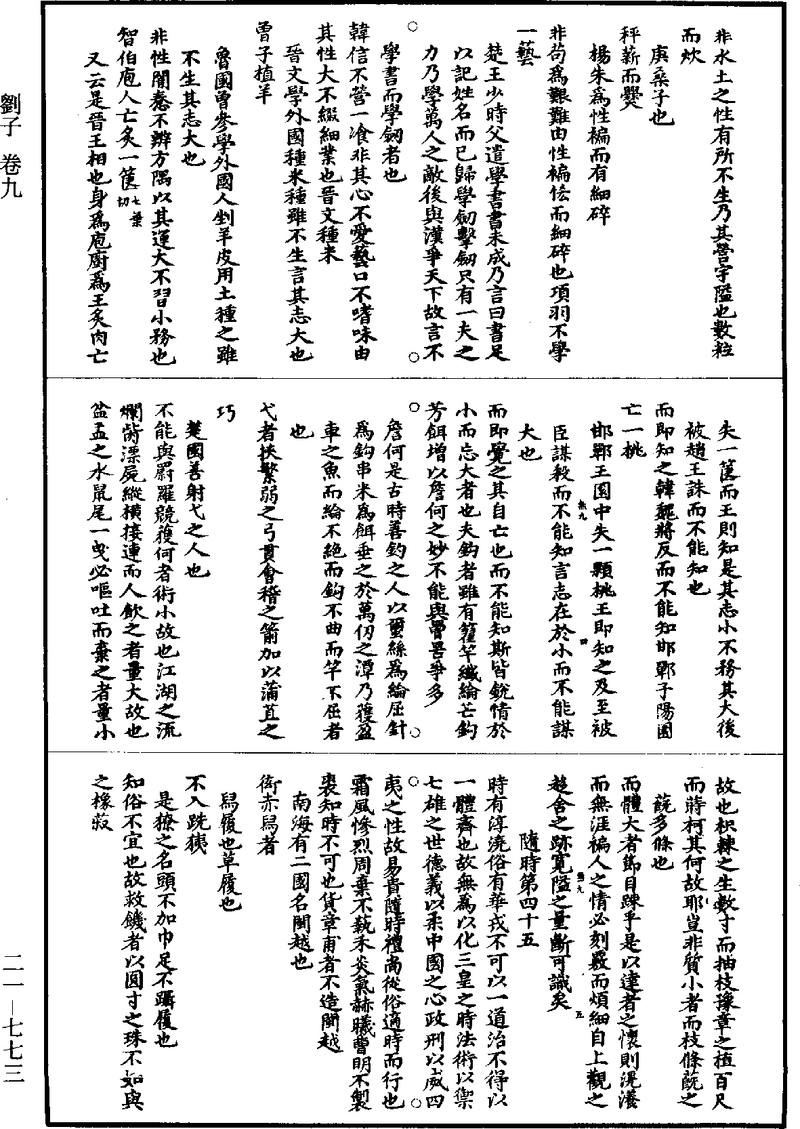 劉子 卷九
二一—七七三
非水土之性有所不生乃其營宇隘也數粒
而炊
庚桑子也
秤薪而爨
楊朱爲性褊而有細碎
非苟爲艱難由性褊怯而細碎也項羽不學
一藝
楚王少時父遣學書書未成乃言曰書足
以記姓名而已歸學劒擊劒只有一夫之
力乃學萬人之敵後與漢爭天下故言不
學書而學劒者也
韓信不營一飡非其心不愛藝口不嗜味由
其性大不綴細業也晉文種米
晉文學外國種米種雖不生言其志大也
曾子植羊
魯國曾參學外國人剉羊皮用土種之雖
不生其志大也
非性闇惷不辨方隅以其運大不習小務也
智伯庖人亡炙一篋七葉切
又云是晉王相也身爲庖廚爲王炙肉亡
失一篋而王則知是其志小不務其大後
被趙王誅而不能知也
而即知之韓魏將反而不能知邯鄲子陽園
亡一桃
邯鄲王園中失一顆桃王即知之及至被
臣謀殺而不能知言志在於小而不能謀
大也
而即覺之其自亡也而不能知斯皆銳情於
小而忘大者也夫鈎者雖有籊竿纖綸芒鈎
芳餌增以詹何之妙不能與罾罟爭多
詹何是古時善釣之人以蠒絲爲綸屈針
爲鈎串米爲餌垂之於萬仞之潭乃獲盈
車之魚而綸不絕而鈎不曲而竿不屈者
也
弋者挾繁弱之弓貫會稽之箭加以蒲苴之
巧
楚國善射弋之人也
不能與罻羅競獲何者術小故也江湖之流
爛胔漂屍縱橫接連而人飲之者量大故也
盆盂之水鼠尾一曳必嘔吐而棄之者量小
故也枳棘之生數寸而抽枝豫章之植百尺
而蔣柯其何故耶豈非質小者而枝條蓏之
蓏多條也
而體大者節目踈乎是以達者之懷則滉瀁
而無涯褊人之情必刻覈而煩細自上觀之
趍舍之跡寬隘之量斷可識矣
隨時第四十五
時有淳澆俗有華戎不可以一道治不得以
一體齊也故無爲以化三皇之時法術以禦
七雄之世德義以柔中國之心政刑以威四
夷之性故易貴隨時禮尚從俗適時而行也
霜風慘烈周棄不蓺禾炎氣赫曦曹明不製
裘知時不可也貨章甫者不造閩越
南海有二國名閩越也
衒赤舄者
舄履也草履也
不入跣狄
是獠之名頭不加巾足不躡履也
知俗不宜也故救饑者以圓寸之珠不如與
之橡菽